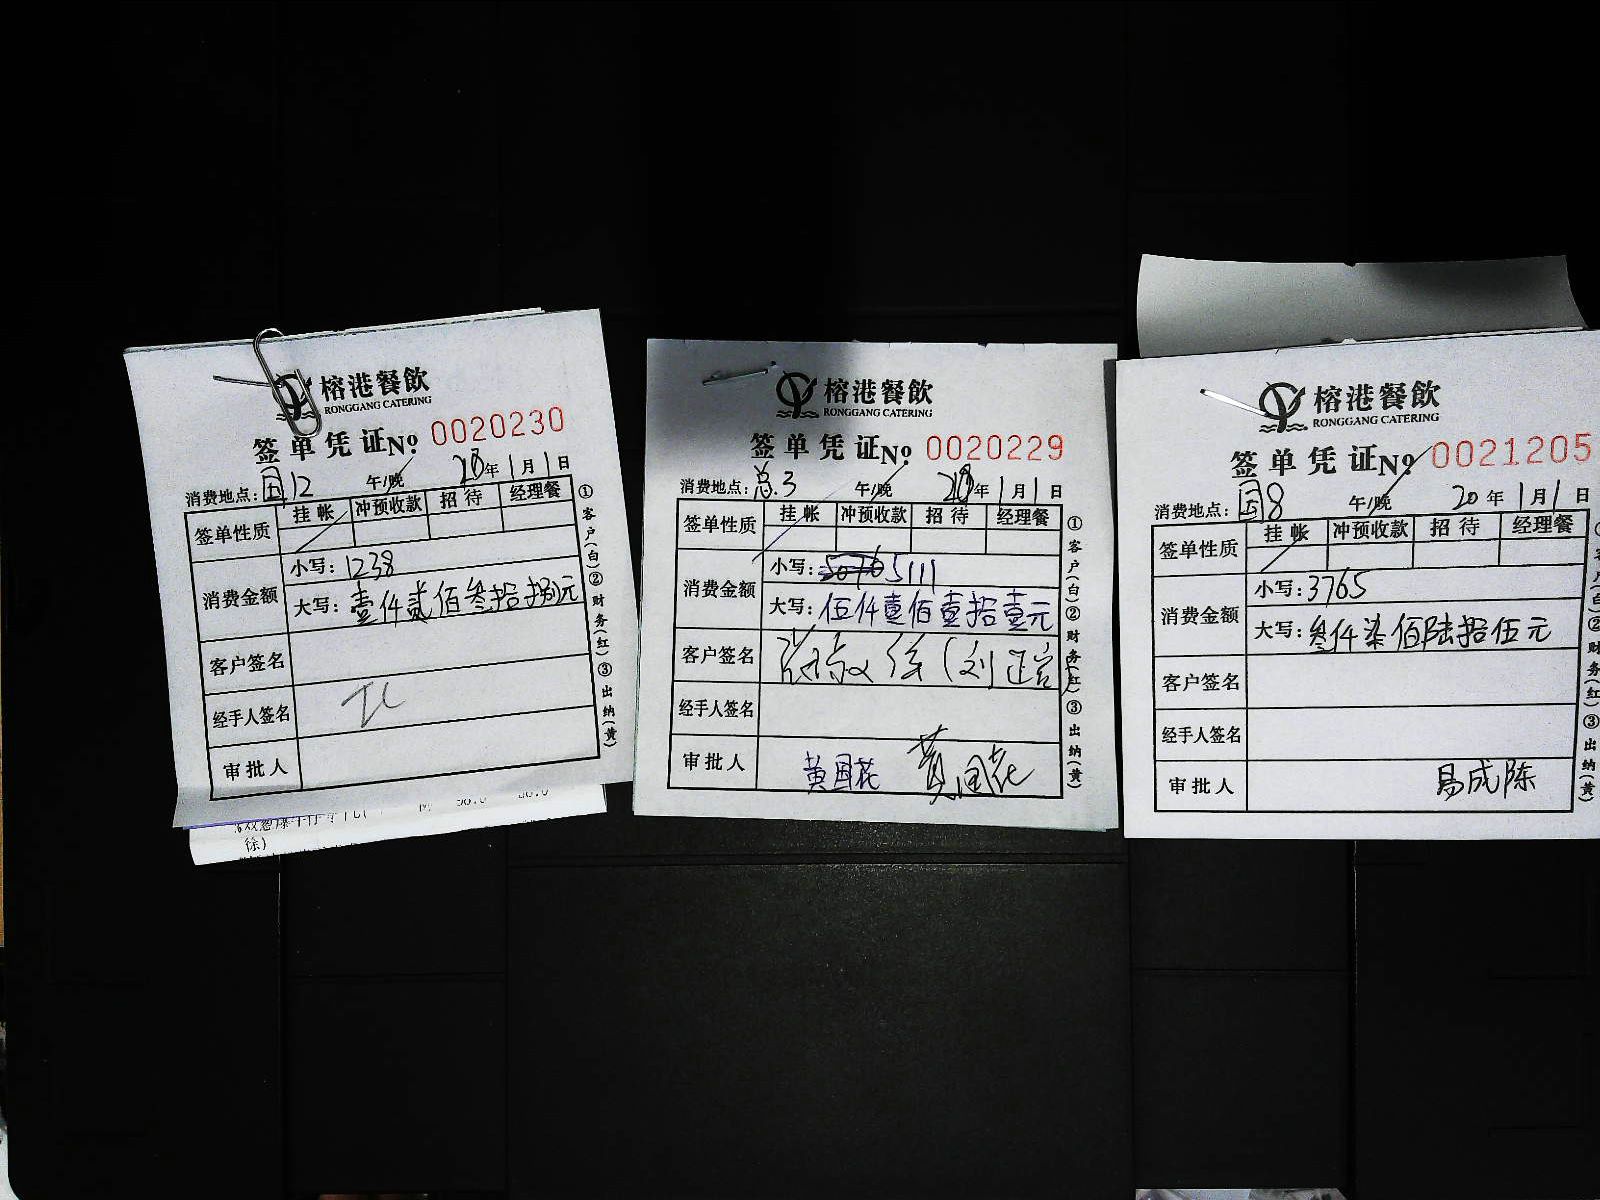 榕港餐飲
RONGGANG CATERING
签单凭证 No 0020230
消费地点：国12 午/晚 20年1月1日
签单性质 挂帐 冲预收款 招待 经理餐
消费金额 小写：1238
大写：壹仟贰佰叁拾捌元
客户签名
经手人签名
审批人
①客户(白)②财务(红)③出纳(黄)
徐)
榕港餐飲
RONGGANG CATERING
签单凭证 No 0020229
消费地点：总.3 午/晚 20年1月1日
签单性质 挂帐 冲预收款 招待 经理餐
消费金额 小写：5111
大写：伍仟壹佰壹拾壹元
客户签名
经手人签名
审批人 黄国花 黄国花
①客户(白)②财务(红)③出纳(黄)
榕港餐飲
RONGGANG CATERING
签单凭证 No 0021205
消费地点：国8 午/晚 20年1月1日
签单性质 挂帐 冲预收款 招待 经理餐
消费金额 小写：3765
大写：叁仟柒佰陆拾伍元
客户签名
经手人签名
审批人 易成陈
客户(白)②财务(红)③出纳(黄)